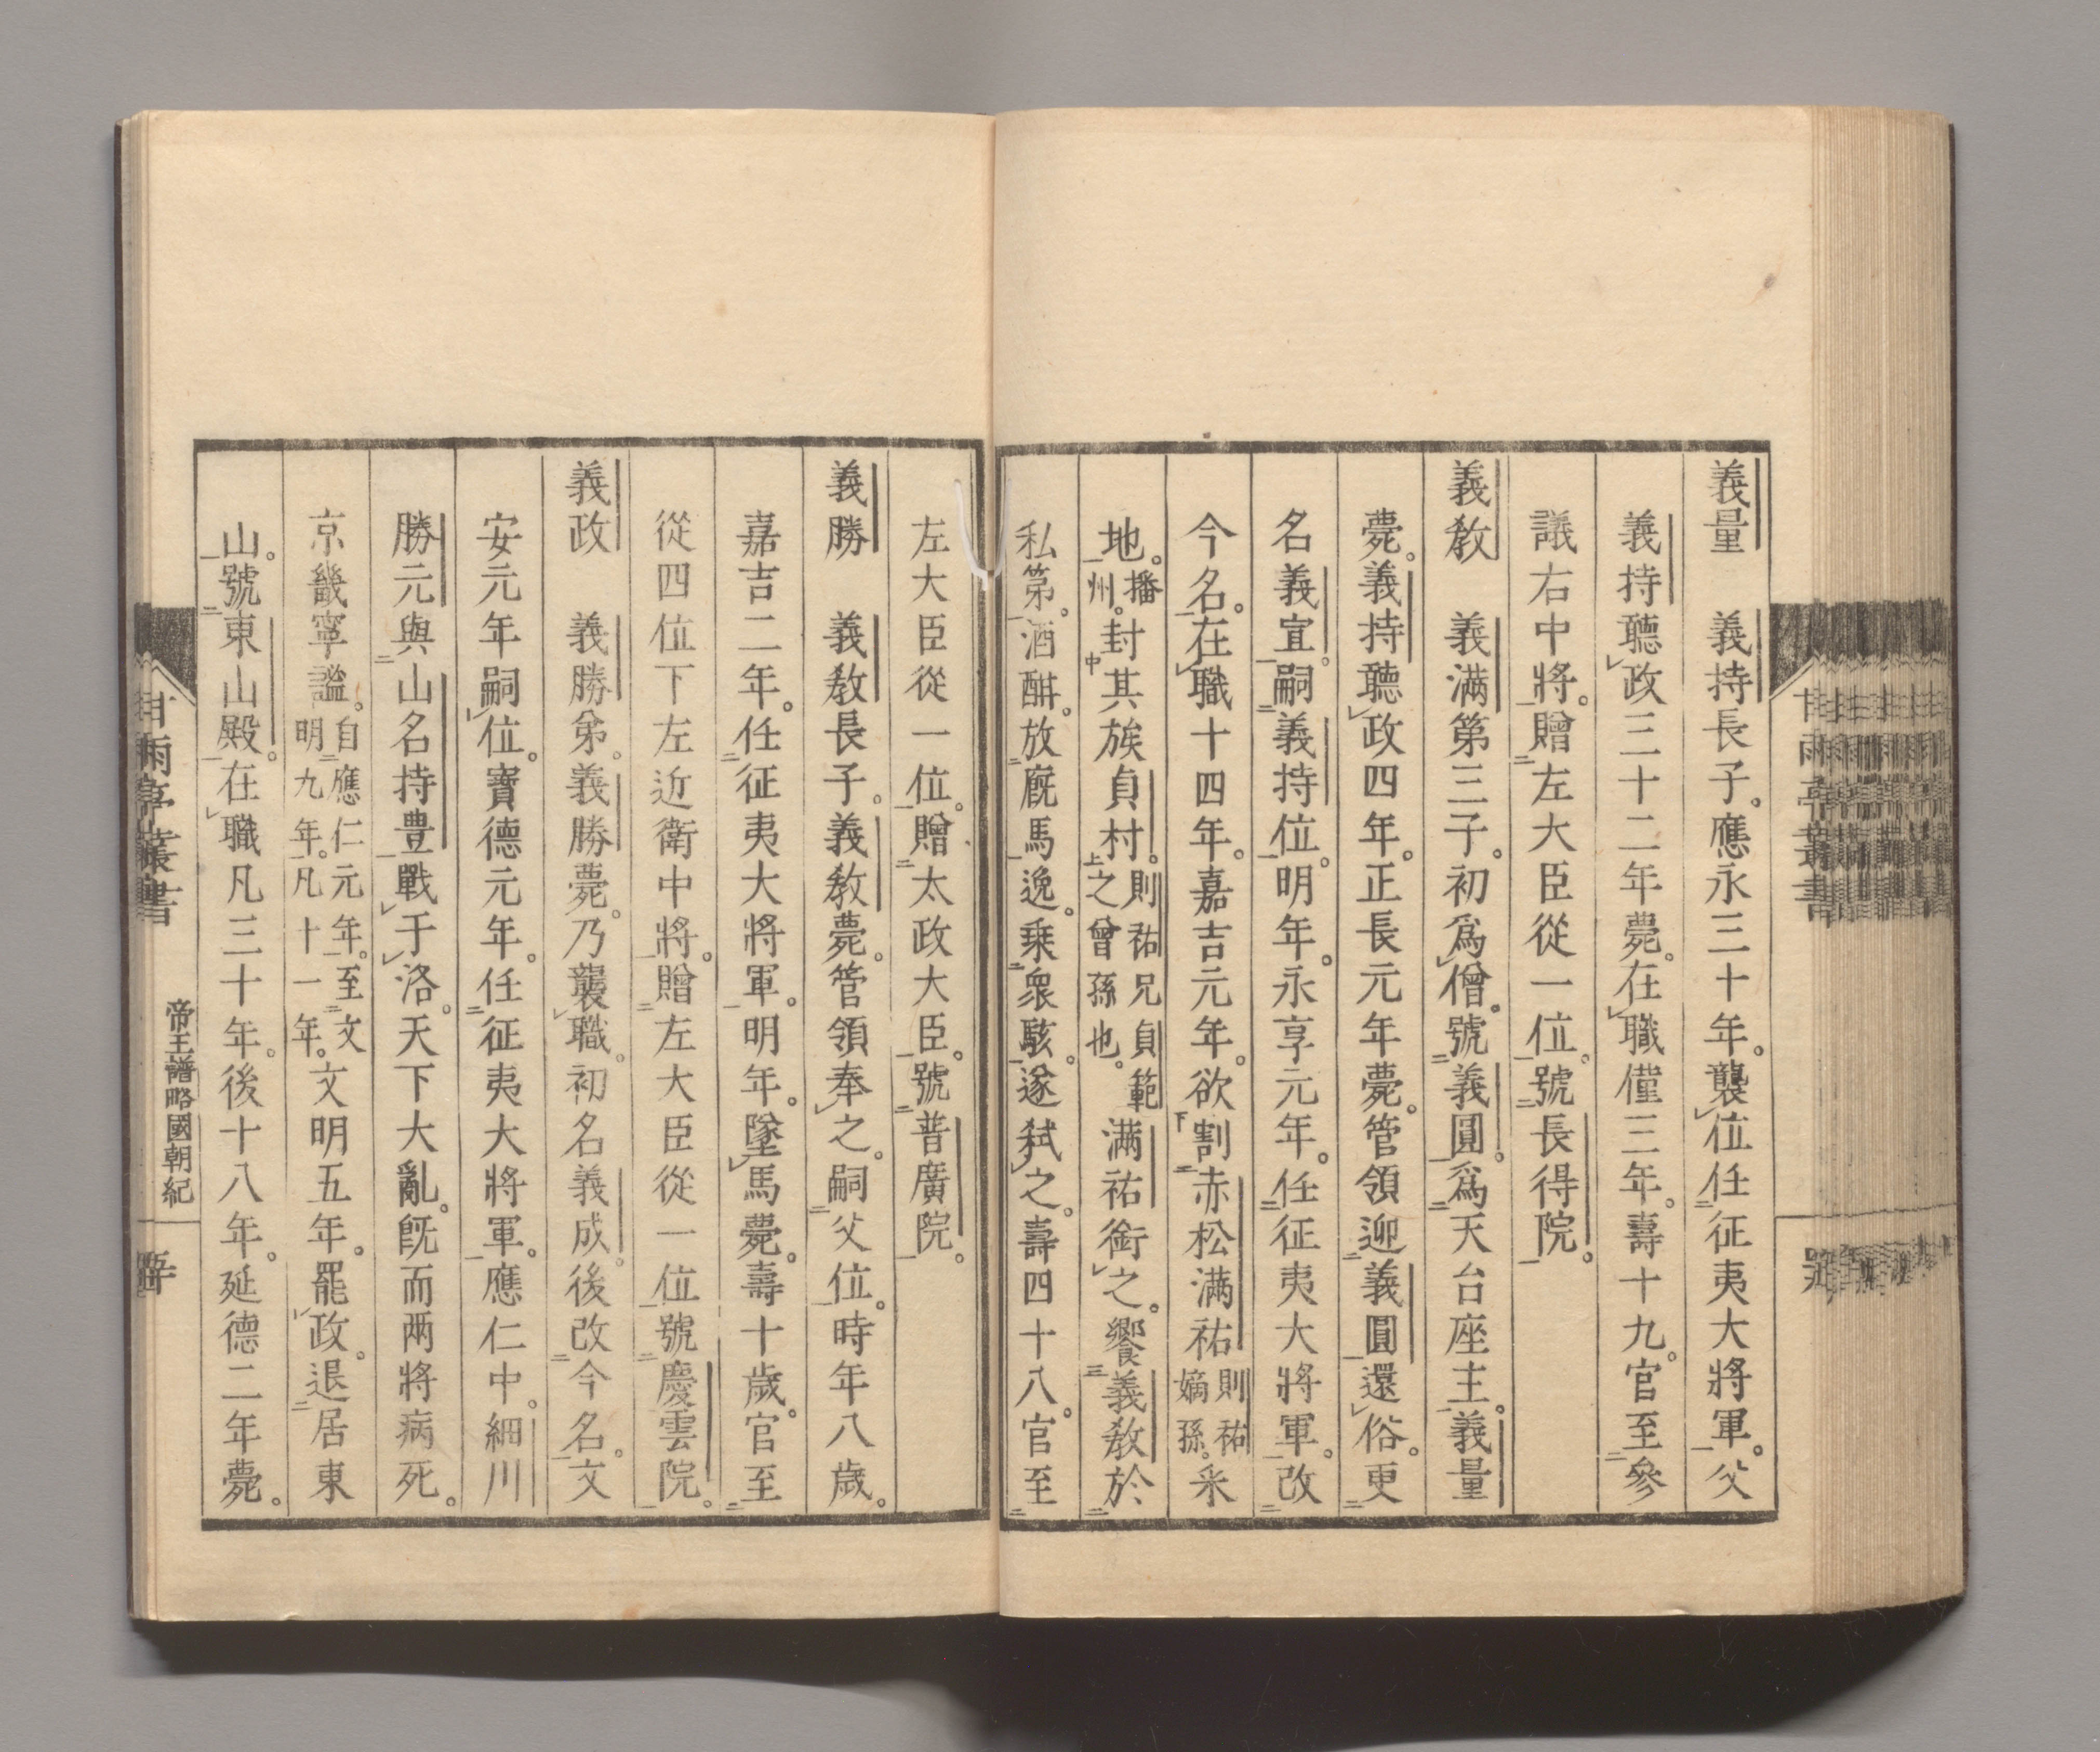 義量　義持長子。應永三十年。襲位任征夷大將軍。父
義持聽政三十二年薨。在職僅三年。壽十九。官至參
議右中將。贈左大臣從一位。號長得院。
義敎　義滿第三子。初爲僧。號義圓。爲天台座主。義量
薨。義持聽政四年。正長元年薨。管領迎義圓還俗。更
名義宣。嗣義持位。明年。永享元年。任征夷大將軍。改
今名。在職十四年。嘉吉元年。欲割赤松滿祐則祐嫡孫。釆
地。播州。封其族貞村。則祐兄貞範之曾孫也。滿祐銜之。饗義敎於
私第。酒酣。放廐馬逸。乘衆駭。遂弑之。壽四十八。官至
左大臣從一位。贈太政大臣。號普廣院。
義勝　義敎長子。義敎薨。管領奉之。嗣父位。時年八歲。
嘉吉二年。任征夷大將軍。明年。墜馬薨。壽十歲。官至
從四位下左近衛中將。贈左大臣從一位號慶雲院。
義政　義勝弟。義勝薨。乃襲職。初名義成。後改今名。文
安元年嗣位。寶德元年。任征夷大將軍。應仁中。細川
勝元與山名持豊戰于洛。天下大亂。旣而兩將病死。
京畿寧謐。自應仁元年。至文明九年。凡十一年。文明五年。罷政。退居東
山。號東山殿。在職凡三十年。後十八年。延德二年薨。
甘雨亭叢書
帝王譜略國朝紀
甘雨亭叢書